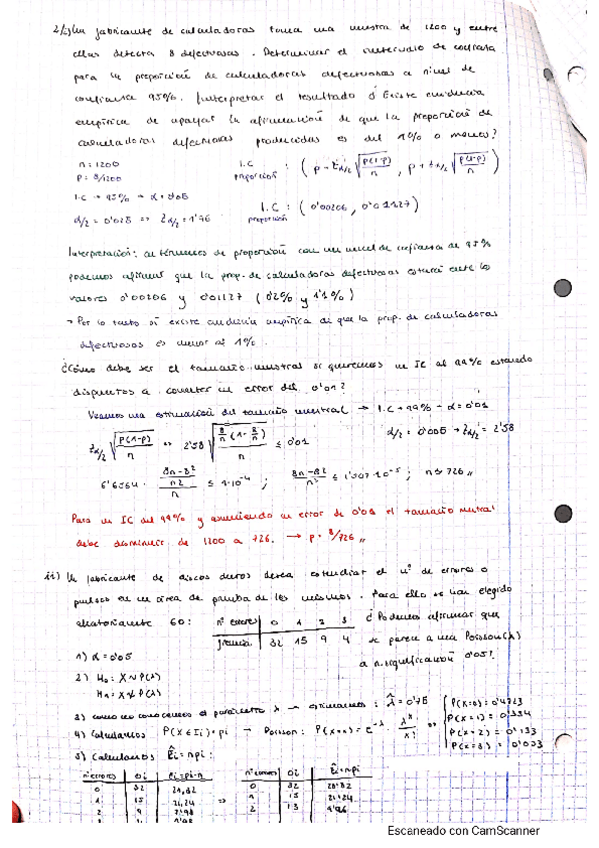 2/i) Un fabricante de calculadoras toma una muestra de 1200 y entre
ellas detecta 8 defectuosas. Determinar el intervalo de confianza
para la proporción de calculadoras defectuosas a nivel de
confianza 95%. Interpretar el resultado ¿Existe evidencia
empírica de apoyar la afirmación de que la proporción de
calculadoras defectuosas producidas es del 1% o menos?
n = 1200 I.C proporción : ( p - Zα/2 √(p(1-p)/n) , p + Zα/2 √(p(1-p)/n) )
p = 8/1200
I.C → 95% → α = 0'05
α/2 = 0'025 → Zα/2 = 1'96 I.C proporción : ( 0'00206, 0'01127 )
Interpretación: en términos de proporción con un nivel de confianza de 95%
podemos afirmar que la prop. de calculadoras defectuosas estará entre los
valores 0'00206 y 0'01127 ( 0'2% y 1'1% )
→ Por lo tanto sí existe evidencia empírica de que la prop. de calculadoras
defectuosas es menor al 1%.
¿Cómo debe ser el tamaño muestral si queremos un IC al 99% estando
dispuestos a cometer un error del 0'01?
Veamos una estimación del tamaño muestral → I.C → 99% → α = 0'01
Zα/2 √(p(1-p)/n) ⇒ 2'58 √(8/n (1 - 8/n)/n) ≤ 0'01 α/2 = 0'005 → Zα/2 = 2'58
6'6564 · (8n-8²/n²)/n ≤ 1·10⁻⁴ ; 8n-8²/n³ ≤ 1'507·10⁻⁵ ; n ≈ 726 //
Para un IC del 99% y asumiendo un error de 0'01 el tamaño mutral
debe disminuir de 1200 a 726. → p = 8/726 //
ii) Un fabricante de discos duros desea estudiar el nº de errores o
pulsos en un área de prueba de los mismos. Para ello se han elegido
aleatoriamente 60: nº errores 0 1 2 3 ¿Podemos afirmar que
frecuencia 32 15 9 4 se parece a una Poisson(λ)
1) α = 0'05 a n. significación 0'05?
2) H₀ : X ~ P(λ)
H₁ : X ≁ P(λ)
3) como no conocemos el parámetro λ → estimamos : λ̂ = 0'75
4) Calculamos P(X ∈ Ii) = pi → Poisson: P(X=x) = e^-λ · λ^x/x! ⇒ P(X=0) = 0'4723
P(X=1) = 0'354
P(X=2) = 0'133
P(X=3) = 0'033
5) Calculamos Êi = n pi :
nº errores Oi Ei = pi·n nº errores Oi Êi = npi
0 32 28,32 0 32 28'32
1 15 21,24 ⇒ 1 15 21'24
2 9 7'98 2 13 9'96
Escaneado con CamScanner